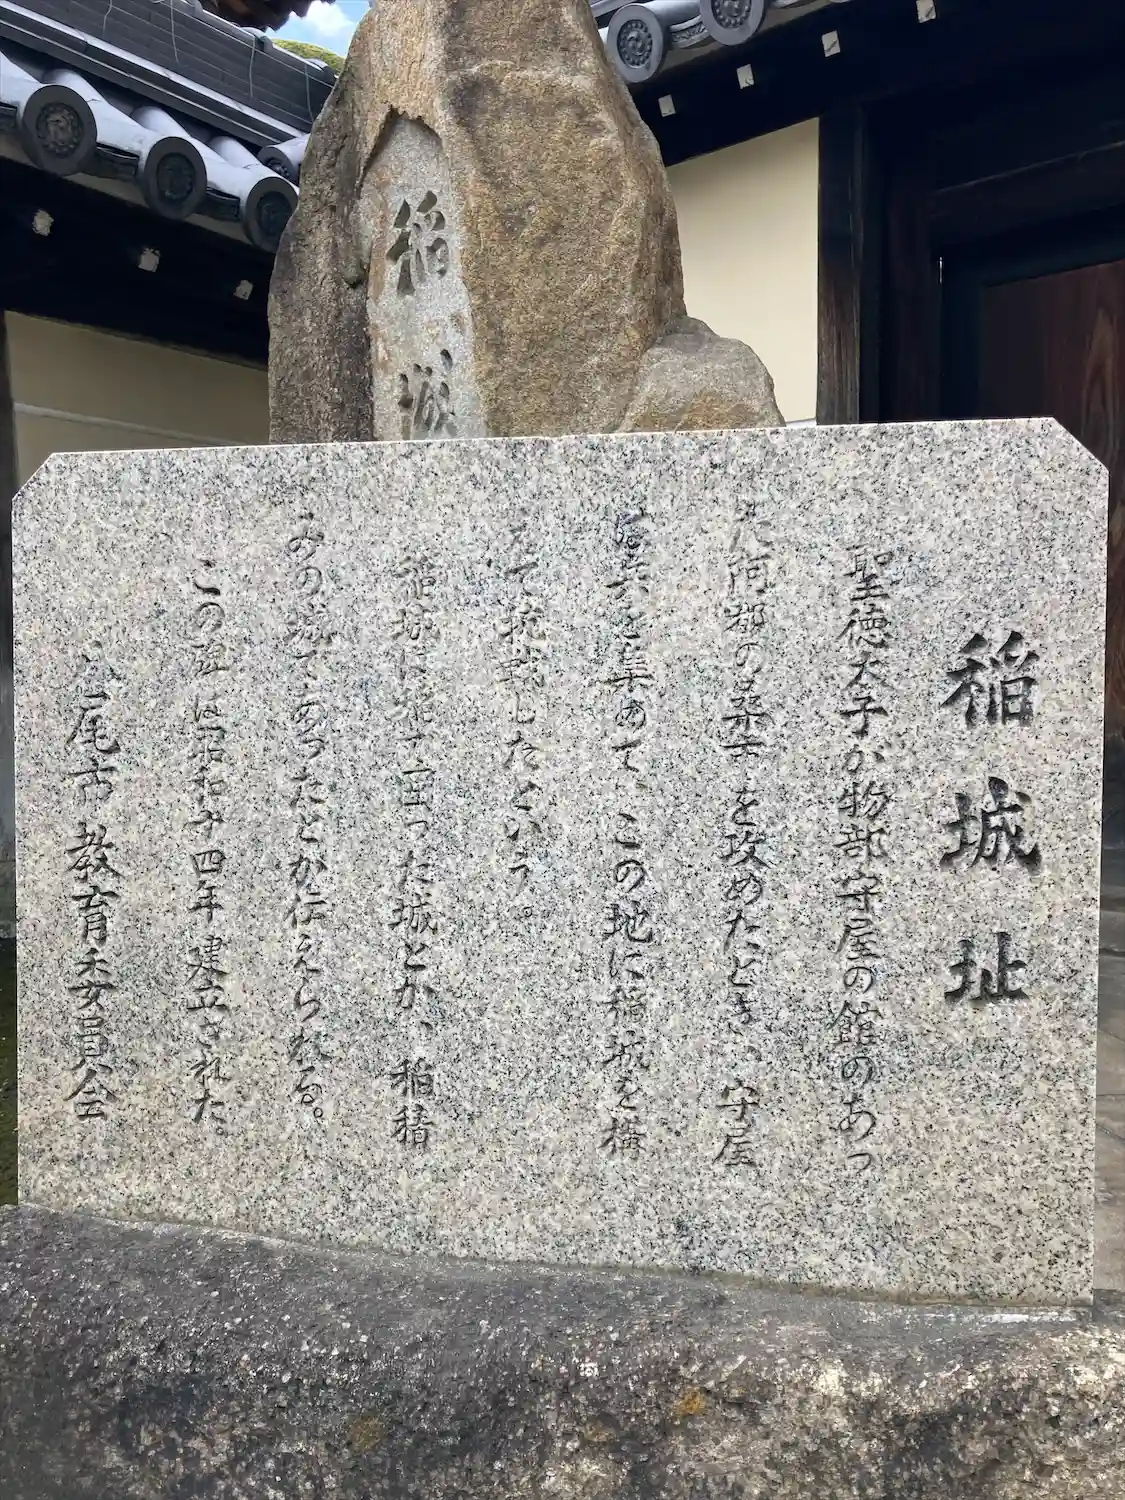 稲城
稲城址
聖徳太子が物部守屋の館のあっ
た阿都の桑市を攻めたとき、守屋
は兵を集めて、この地に稲城を構
えて抗戦したという。
稲城は稲で囲った城とか、稲積
みの城であったとか伝えられる。
この碑は昭和十四年建立された。
八尾市教育委員会